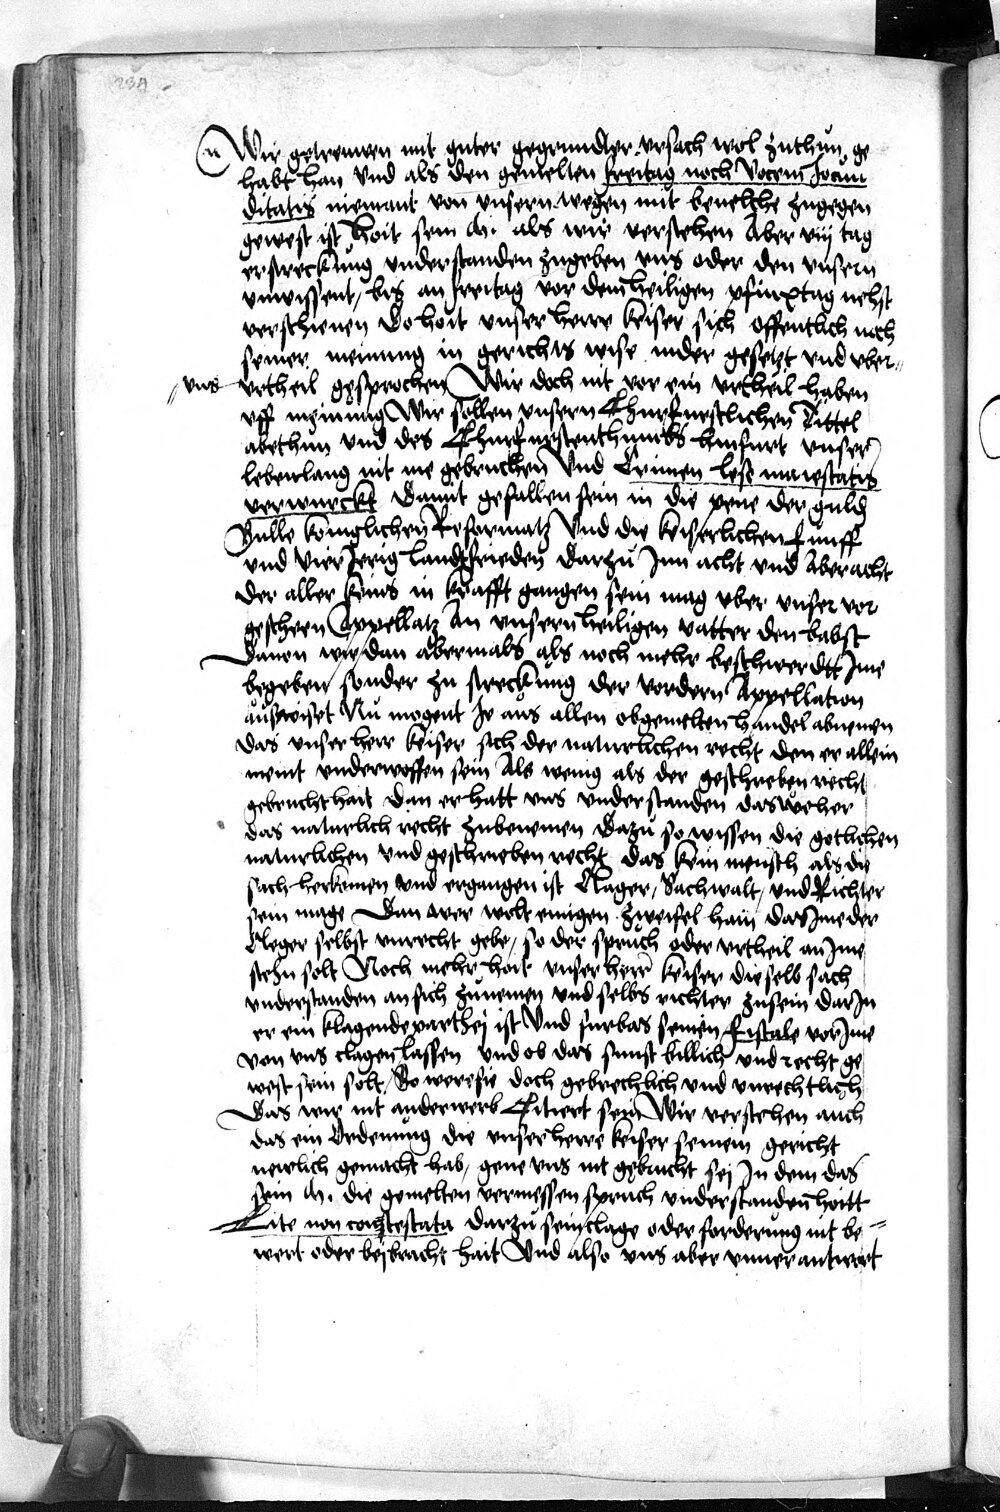 234
Wir getrewen mit guter gegrundter vrsach wol zuthun ge
habt han Vnd als den gemelten freitag noch Vocem Jocun
ditatis niemant von vnsern wegen mit beuelhe zugegen
gewest ist hoit sein M. als wir verstehen Aber viij tag
erstreckung vnderstanden zugeben vns oder den vnsern
vnwissent, bis an freitag vor dem heiligen pfinxtag nehst
verschienen Do hoit vnser herre keiser sich offentlich noch
seiner meinung in gerichts wise nider gesetzt vnd vber
vns
vrtheil gesprochen Wir doch nit vor ein vrtheil haben
vff meinung Wir sollen vnsern Churfurstlichen Tittel
abethun vnd des Churfurstenthumbs hinfurt vnser
lebenlang nit me gebruchen Vnd Crimen lese maiestatis
verwurckt Damit gefallen sein in die pene der guld
Bulle koniglichen Reformatz Vnd die keiserlichen funff
vnd Vier Jerig Landtfrieden Darzu Inn acht vnd Aberacht
Der aller keins in krafft gangen sein mag vber vnser vor
gescheen Appellatz An vnsern heiligen vatter den babst
Dauon wir dan abermals als noch mehr beschwerdt Ime
begeben sonder zu streckung der vordern Appellation
außwiset Nu mogent Ir aus allen obgemelten handel abnemen
das vnser herr keiser sich der naturlichen recht den er allein
meint vnderworffen sein Als wenig als der geschrieben recht
gebrucht hait Dan er hatt vns vnderstanden das weher
das naturlich recht zubenemen Dazu so wissen die gotlichen
naturlichen vnd geschrieben recht das kein mensch als die
sach herkomen vnd ergangen ist Clager, Sachwalt, vnd Richter
sein mage Dan wer wolt einigen zweifel han das Ime der
Cleger selbst vnrecht gebe, so der spruch oder vrtheil an Ime
stehn solt Noch mehr hoit vnser herr keiser dieselb sach
vnderstanden an sich zunemen vnd selbs richter zusein darIn
er ein klagende parthej ist Vnd furbas seinen Fiscale vor Ime
von vns clagen lassen vnd ob das sunst billich vnd recht ge
west sein solt, So were sie doch gebrechlich vnd vnrechtlich
Das wir nit anderwerb Citiert sein Wir verstehen auch
das ein Ordenung die vnser herre keiser seinem gericht
newlich gemacht hab, gene vns nit gebrucht sej In dem das
sein M. die gemelten vermessen spruch vnderstanden hoitt
Lite non contestata darzu sein clage oder forderung nit be
wert oder beybracht hait Vnd also vns aber vnuerantwort